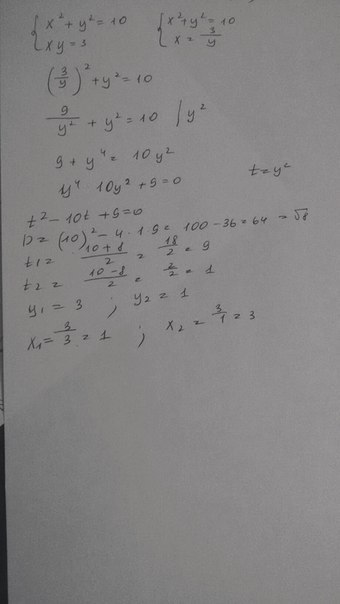 { x² + y² = 10   { x² + y² = 10
{ xy = 3   { x = 3/y
(3/y)² + y² = 10
9/y² + y² = 10 | y²
9 + y⁴ = 10y²
y⁴ 10y² + 9 = 0   t = y²
t² - 10t + 9 = 0
D = (10)² - 4 · 1 · 9 = 100 - 36 = 64 = √8
t1 = (10 + 8)/2 = 18/2 = 9
t2 = (10 - 8)/2 = 2/2 = 1
y1 = 3 ; y2 = 1
x1 = 3/3 = 1 ; x2 = 3/1 = 3